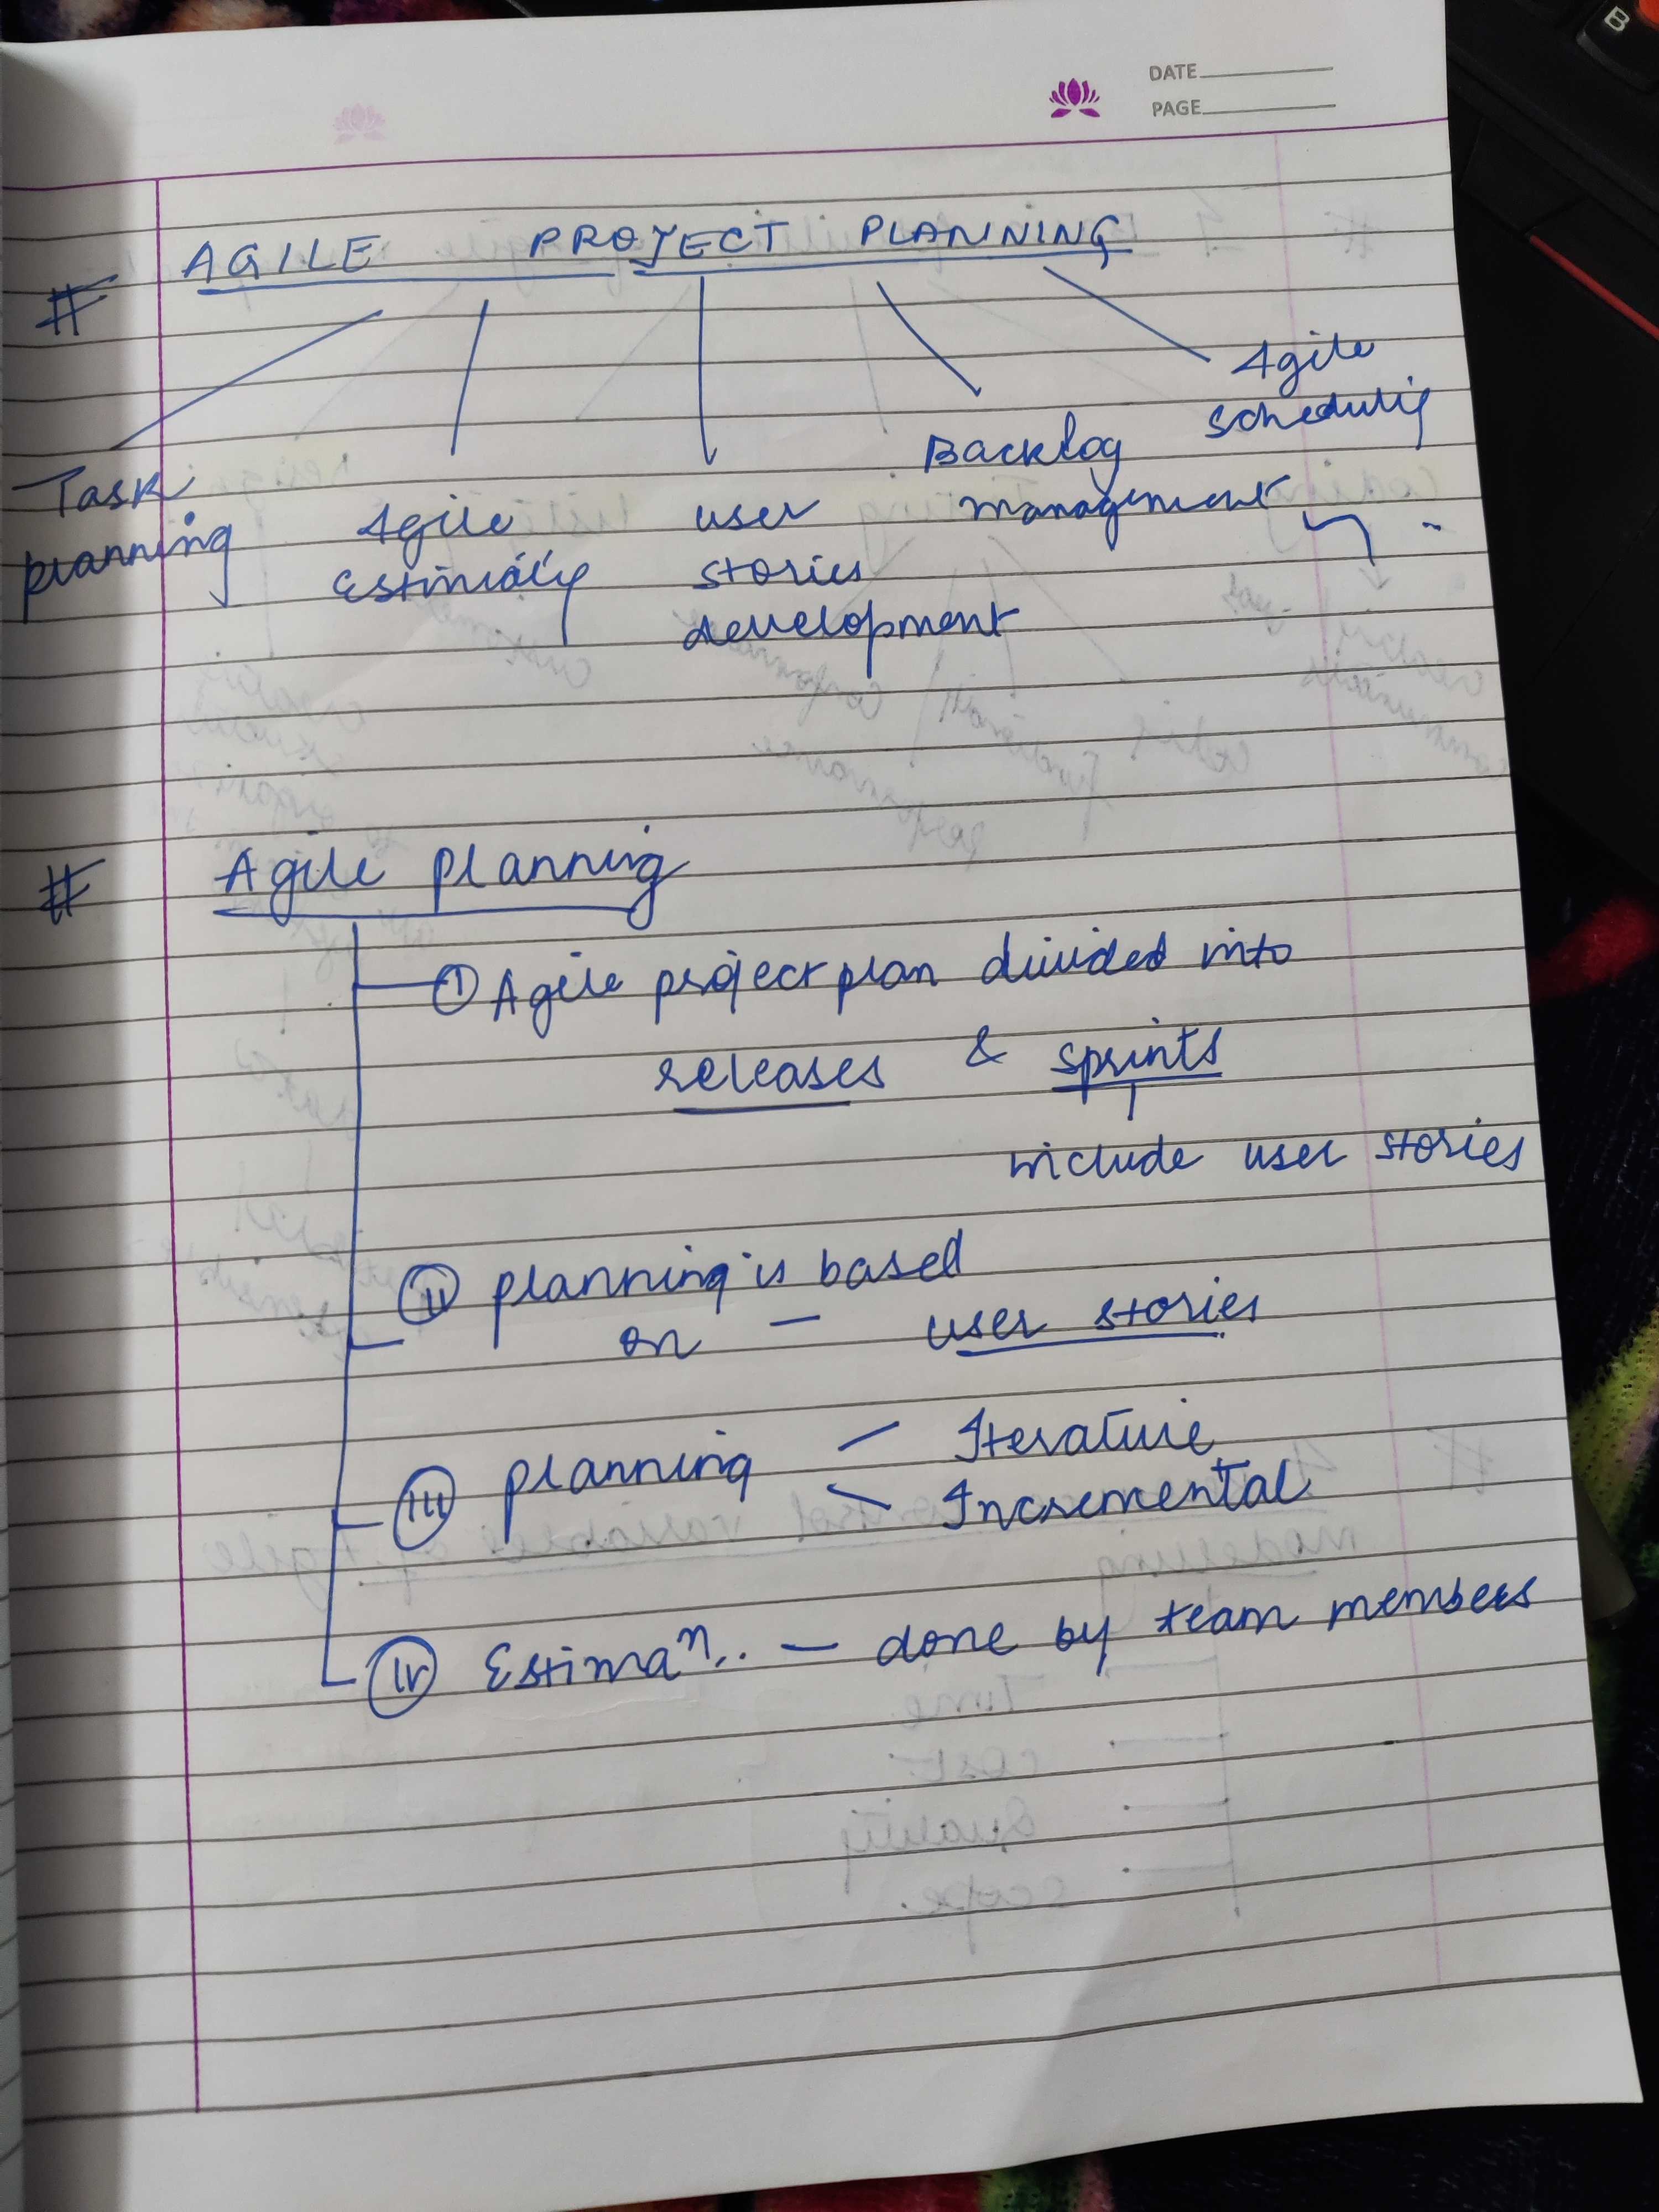 DATE
PAGE
# AGILE PROJECT PLANNING
Task
planning
Agile
Estimating
user
stories
development
Backlog
management
Agile
scheduling
# Agile planning
① Agile project plan divided into
releases & sprints
include user stories
ⓘⓘ planning is based
on — user stories
ⓘⓘⓘ planning — Iterative
— Incremental
ⓘⓥ Estimaⁿ.. — done by team members